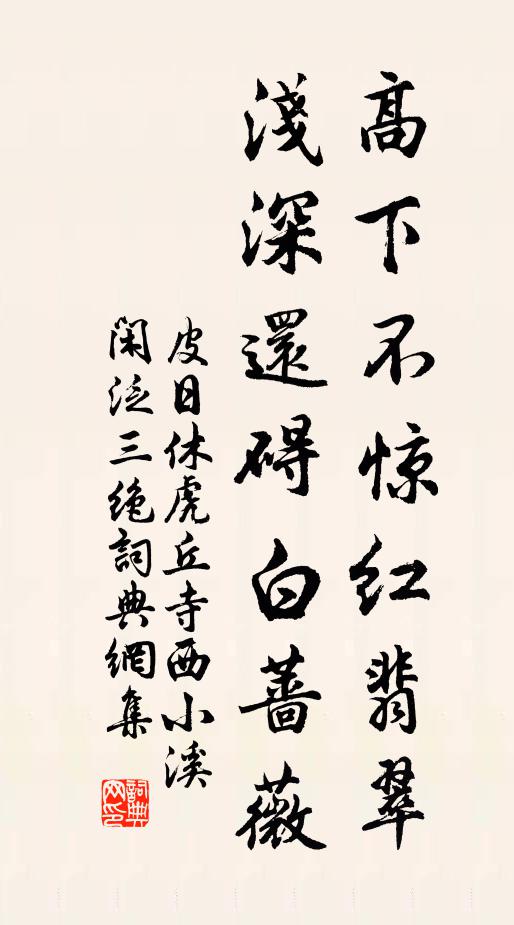 高下不惊红翡翠
淺深還碍白薔薇
皮日休虎丘寺西小溪
闲泛三绝詞典網集
詞典网印